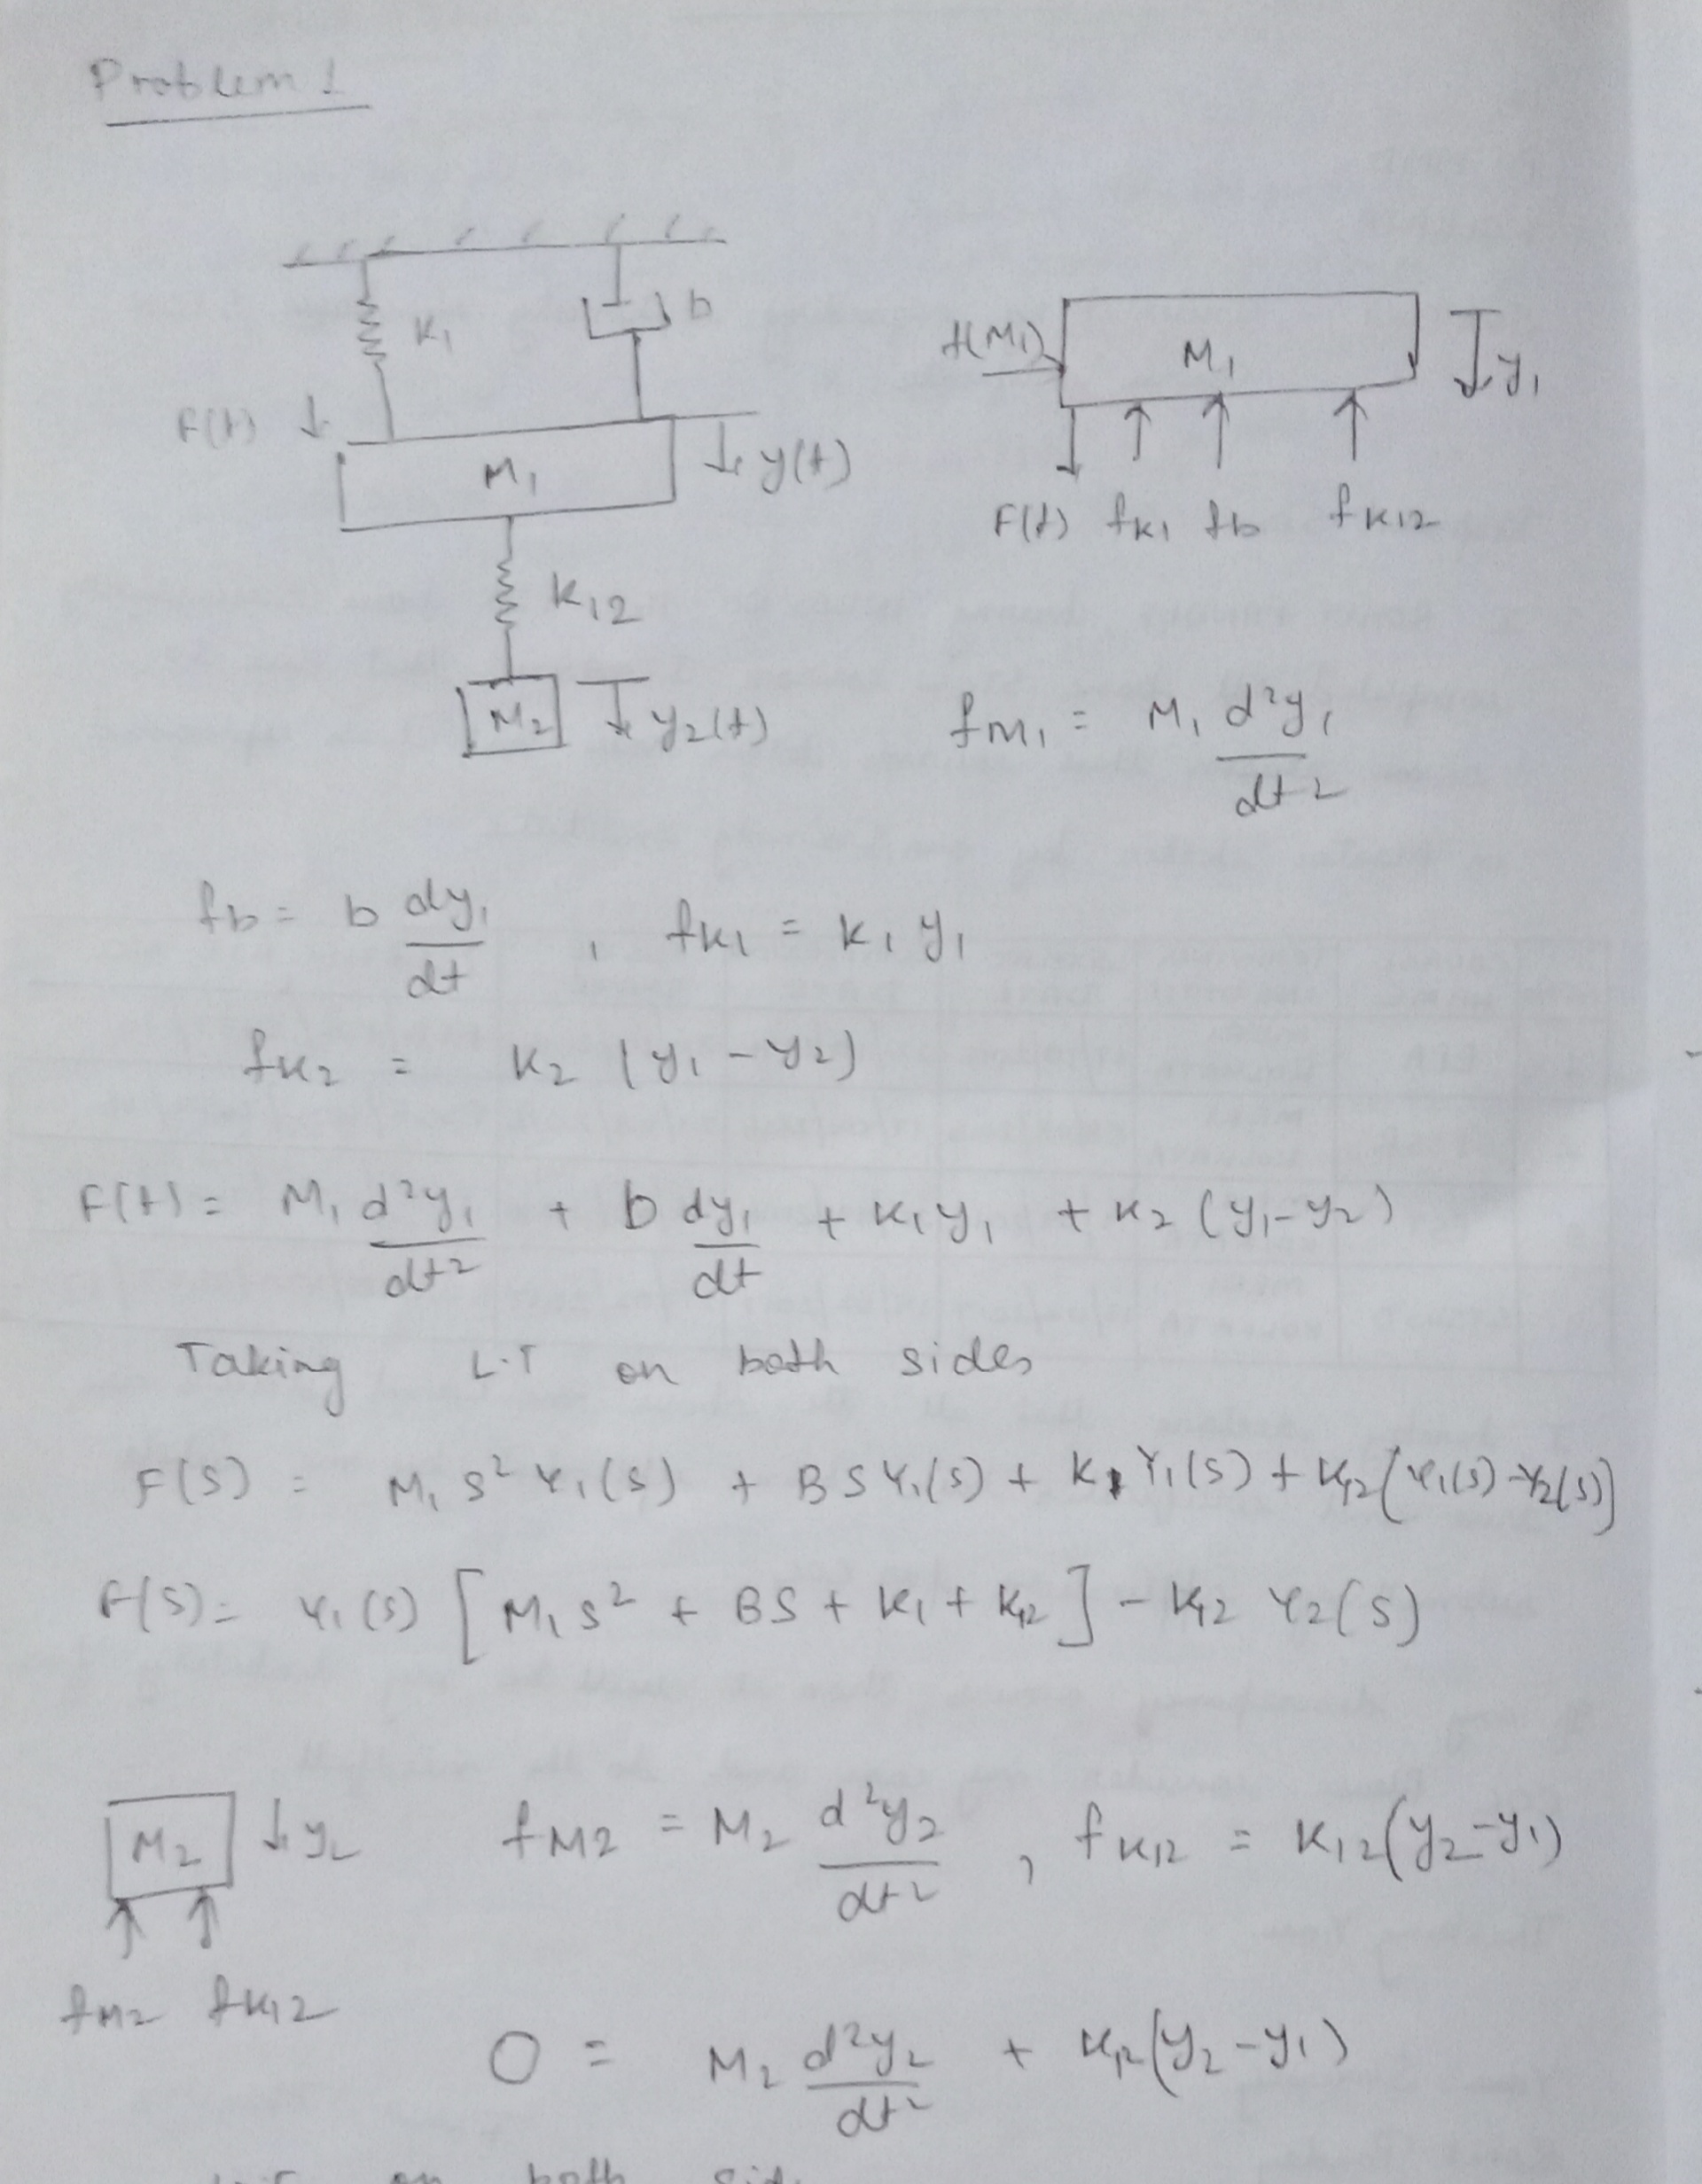 Problem 1
K1
b
F(t)
M1
y(t)
K12
M2
y2(t)
f(M1)
M1
y1
F(t) fK1 fb fK12
fM1 = M1 d²y1/dt²
fb = b dy1/dt , fK1 = K1 y1
fK2 = K2 (y1 - y2)
F(t) = M1 d²y1/dt² + b dy1/dt + K1 y1 + K2 (y1 - y2)
Taking L.T on both sides
F(S) = M1 S² Y1(S) + BS Y1(S) + K1 Y1(S) + K12 [Y1(S) - Y2(S)]
F(S) = Y1(S) [M1 S² + BS + K1 + K12] - K12 Y2(S)
M2
y2
fM2 = M2 d²y2/dt² , fK12 = K12(y2 - y1)
fM2 fK12
0 = M2 d²y2/dt² + K12(y2 - y1)
on both